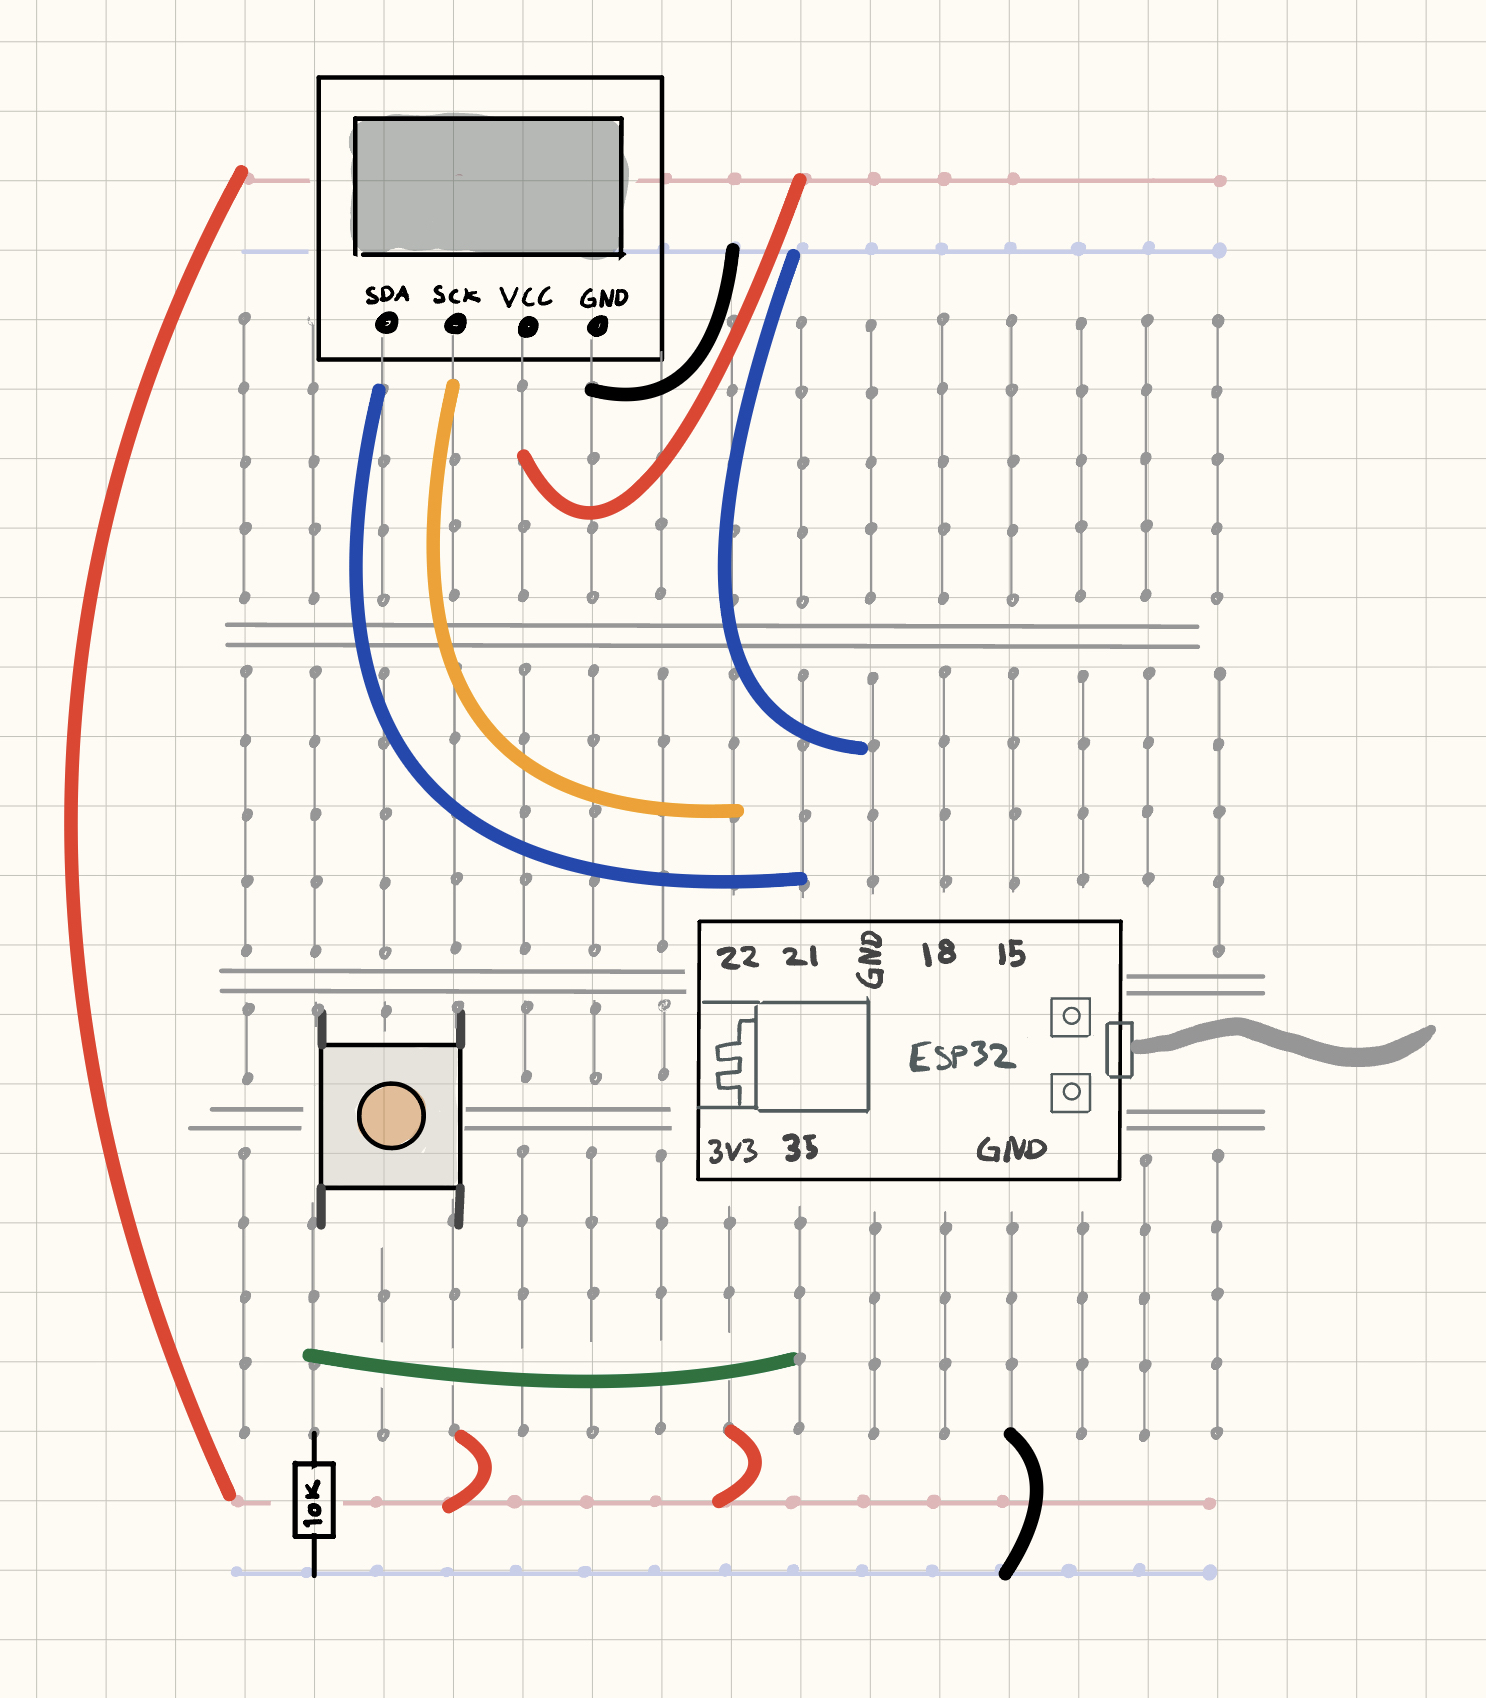 SDA SCK VCC GND
22 21 GND 18 15
ESP32
3V3 35 GND
10K